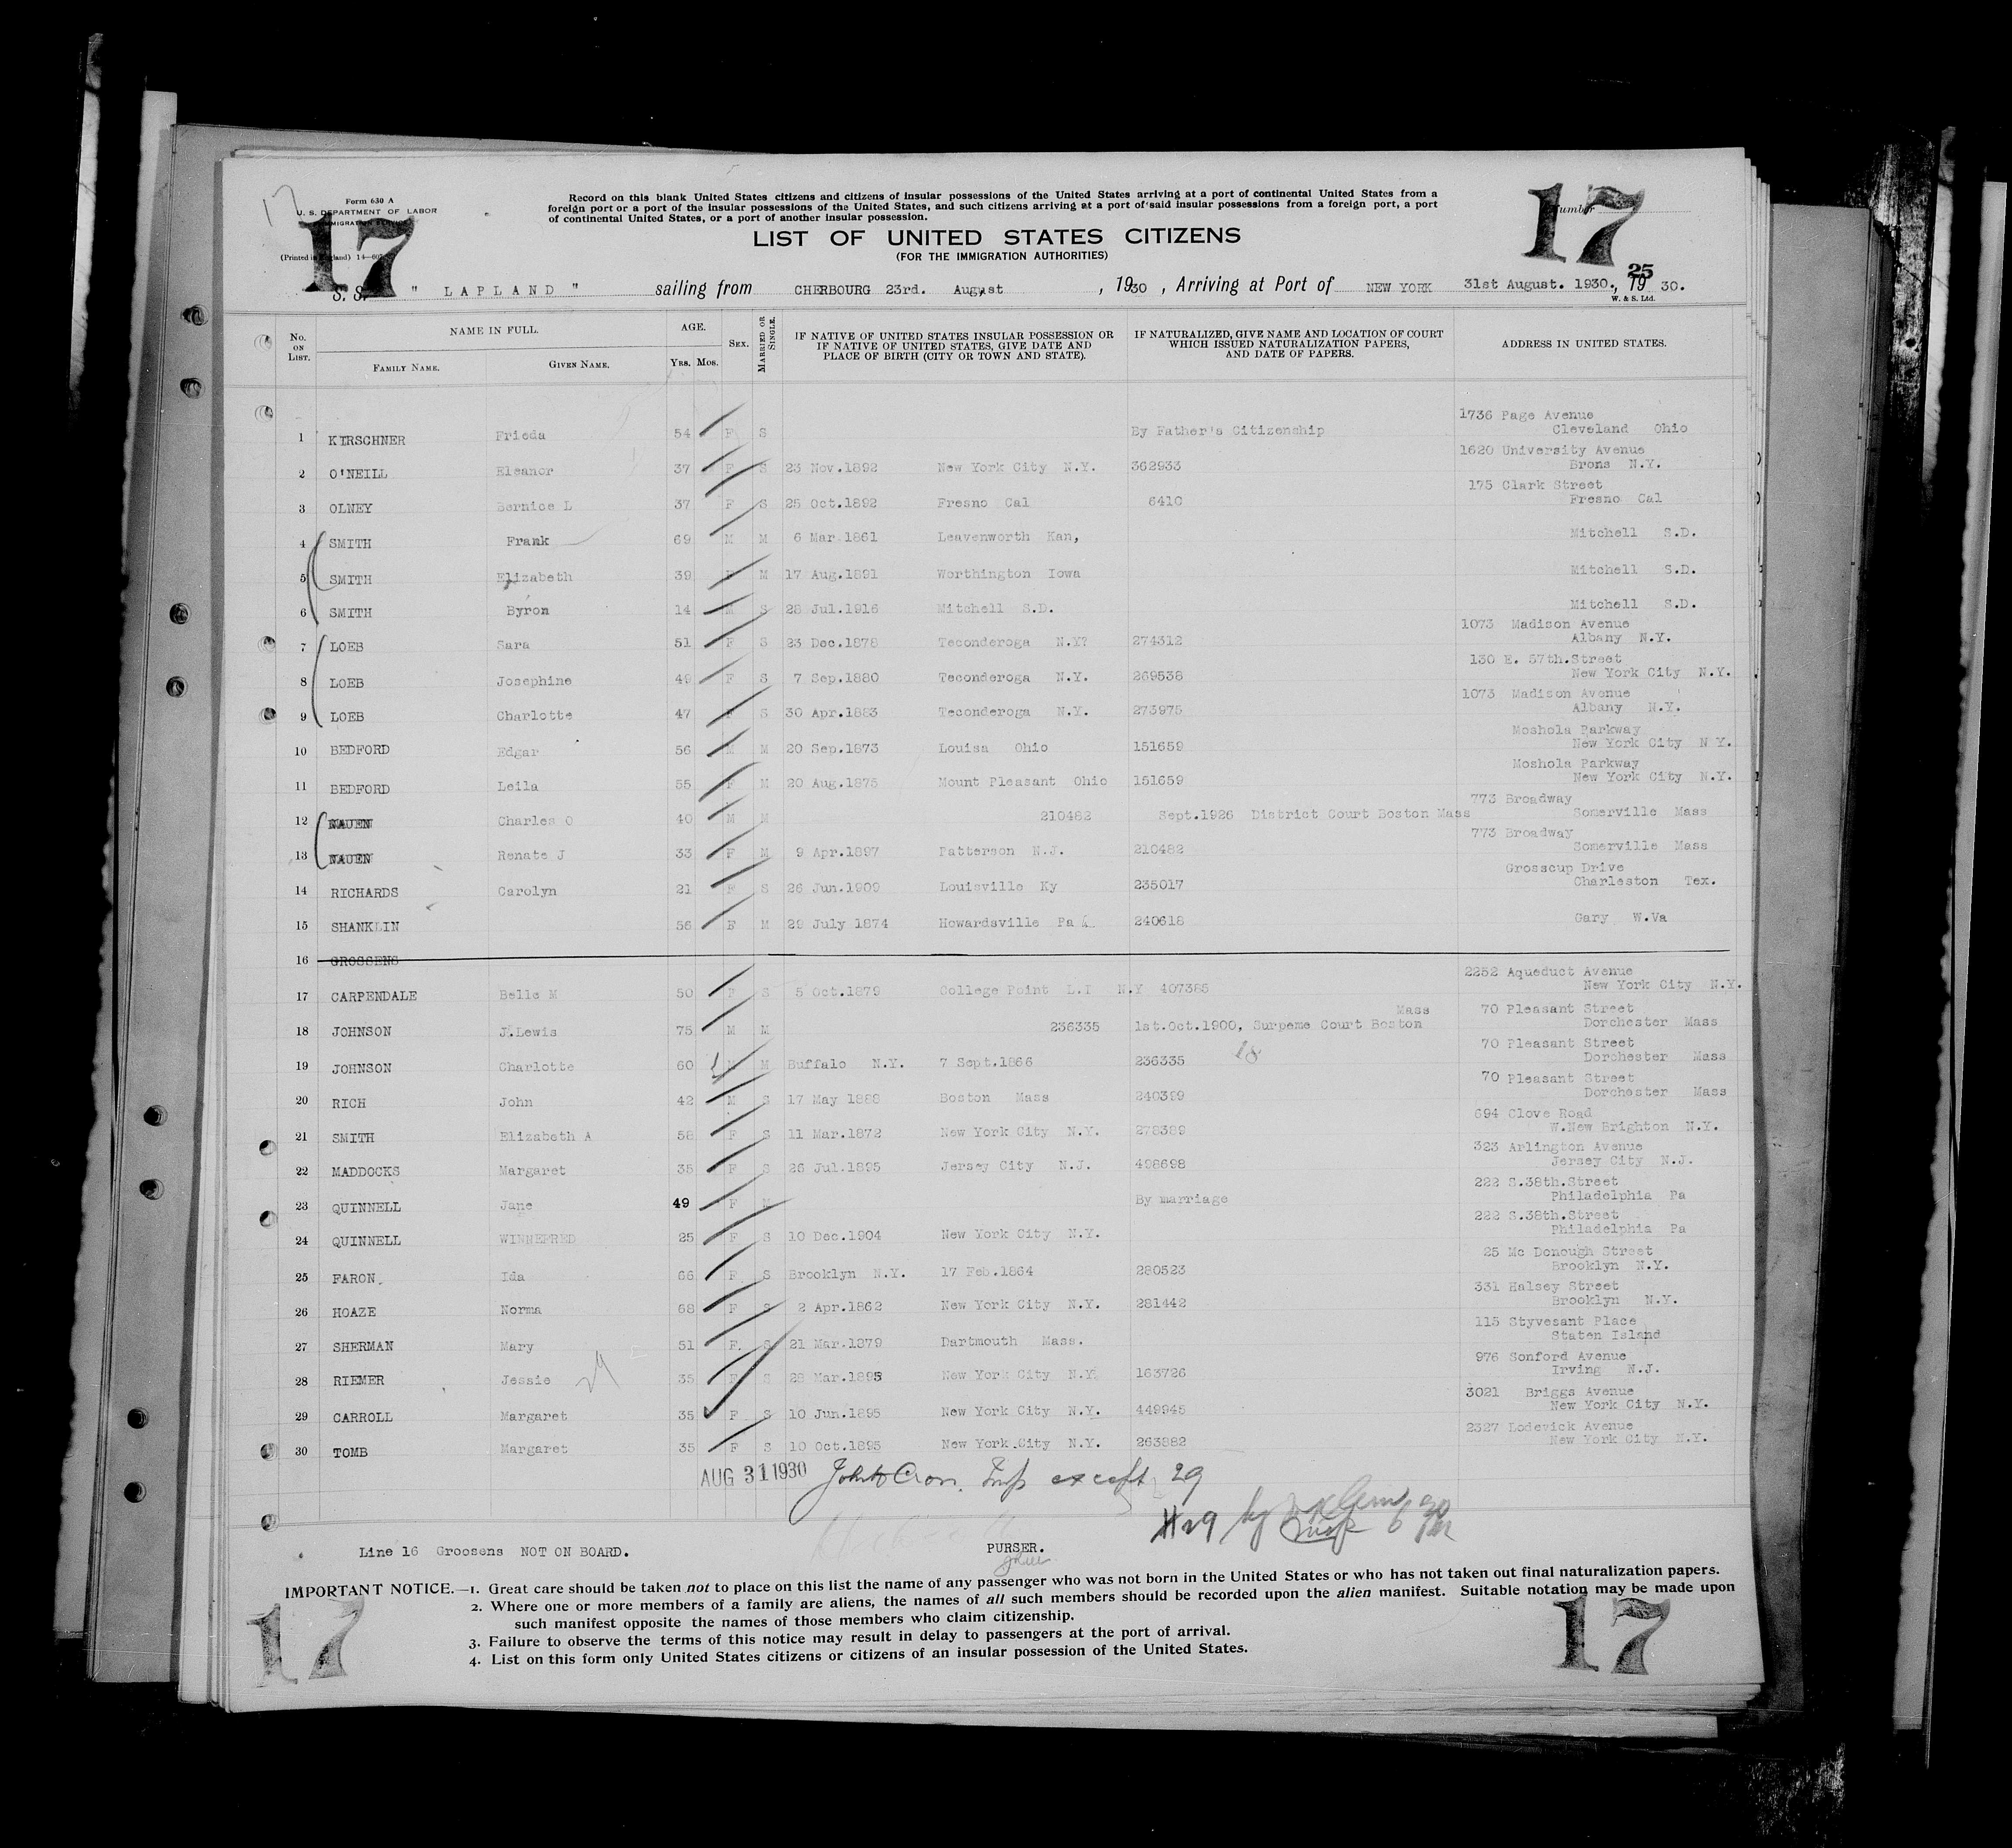 17
Form 630 A
U. S. DEPARTMENT OF LABOR
IMMIGRATION SERVICE
(Printed in England) 14—60
17
Record on this blank United States citizens and citizens of insular possessions of the United States arriving at a port of continental United States from a
foreign port or a port of the insular possessions of the United States, and such citizens arriving at a port of said insular possessions from a foreign port, a port
of continental United States, or a port of another insular possession.
LIST OF UNITED STATES CITIZENS
(FOR THE IMMIGRATION AUTHORITIES)
Number
17
25
S. S. " LAPLAND " sailing from CHERBOURG 23rd. August , 1930 , Arriving at Port of NEW YORK 31st August. 1930., 19 30.
W. & S. Ltd.
No. ON LIST. NAME IN FULL. FAMILY NAME. GIVEN NAME. AGE. YRS. MOS. SEX. MARRIED OR SINGLE. IF NATIVE OF UNITED STATES INSULAR POSSESSION OR IF NATIVE OF UNITED STATES, GIVE DATE AND PLACE OF BIRTH (CITY OR TOWN AND STATE). IF NATURALIZED, GIVE NAME AND LOCATION OF COURT WHICH ISSUED NATURALIZATION PAPERS, AND DATE OF PAPERS. ADDRESS IN UNITED STATES.
1 KIRSCHNER Frieda 54 F S By Father's Citizenship 1736 Page Avenue Cleveland Ohio
2 O'NEILL Eleanor 37 F S 23 Nov.1892 New York City N.Y. 362933 1620 University Avenue Brons N.Y.
3 OLNEY Bernice L 37 F S 25 Oct.1892 Fresno Cal 6410 175 Clark Street Fresno Cal
4 SMITH Frank 69 M M 6 Mar.1861 Leavenworth Kan, Mitchell S.D.
5 SMITH Elizabeth 39 F M 17 Aug.1891 Worthington Iowa Mitchell S.D.
6 SMITH Byron 14 M S 28 Jul.1916 Mitchell S.D. Mitchell S.D.
7 LOEB Sara 51 F S 23 Dec.1878 Teconderoga N.Y? 274312 1073 Madison Avenue Albany N.Y.
8 LOEB Josephine 49 F S 7 Sep.1880 Teconderoga N.Y. 269538 130 E. 57th.Street New York City N.Y.
9 LOEB Charlotte 47 F S 30 Apr.1883 Teconderoga N.Y. 273975 1073 Madison Avenue Albany N.Y.
10 BEDFORD Edgar 56 M M 20 Sep.1873 Louisa Ohio 151659 Moshola Parkway New York City N Y.
11 BEDFORD Leila 55 F M 20 Aug.1875 Mount Pleasant Ohio 151659 Moshola Parkway New York City N.Y.
12 NAUEN Charles O 40 M M 210482 Sept.1926 District Court Boston Mass 773 Broadway Somerville Mass
13 NAUEN Renate J 33 F M 9 Apr.1897 Patterson N.J. 210482 773 Broadway Somerville Mass
14 RICHARDS Carolyn 21 F S 26 Jun.1909 Louisville Ky 235017 Grosscup Drive Charleston Tex.
15 SHANKLIN 56 F M 29 July 1874 Howardsville Pa 240618 Gary W.Va
16 GROSSENS
17 CARPENDALE Belle M 50 F S 5 Oct.1879 College Point L.I N.Y 407385 2252 Aqueduct Avenue New York City N.Y.
18 JOHNSON J.Lewis 75 M M 236335 1st.Oct.1900, Surpeme Court Boston Mass 70 Pleasant Street Dorchester Mass
19 JOHNSON Charlotte 60 M Buffalo N.Y. 7 Sept.1866 236335 18 70 Pleasant Street Dorchester Mass
20 RICH John 42 M S 17 May 1888 Boston Mass 240399 70 Pleasant Street Dorchester Mass
21 SMITH Elizabeth A 58 F S 11 Mar.1872 New York City N.Y. 278389 694 Clove Road W.New Brighton N.Y.
22 MADDOCKS Margaret 35 F S 26 Jul.1895 Jersey City N.J. 498698 323 Arlington Avenue Jersey City N.J.
23 QUINNELL Jane 49 F M By marriage 222 S.38th.Street Philadelphia Pa
24 QUINNELL WINNEFRED 25 F S 10 Dec.1904 New York City N.Y. 222 S.38th.Street Philadelphia Pa
25 FARON. Ida 66 F S Brooklyn N.Y. 17 Feb.1864 280523 25 Mc Donough Street Brooklyn N.Y.
26 HOAZE Norma 68 F S 2 Apr.1862 New York City N.Y. 281442 331 Halsey Street Brooklyn N.Y.
27 SHERMAN Mary 51 F. S 21 Mar.1879 Dartmouth Mass. 115 Styvesant Place Staten Island
28 RIEMER Jessie 35 F S 28 Mar.1895 New York City N.Y. 163726 976 Sonford Avenue Irving N.J.
29 CARROLL Margaret 35 F S 10 Jun.1895 New York City N.Y. 449945 3021 Briggs Avenue New York City N.Y.
30 TOMB Margaret 35 F S 10 Oct.1895 New York City N.Y. 263882 2327 Lodevick Avenue New York City N.Y.
AUG 31 1930 Insp except 29
#29 by
Line 16 Groosens NOT ON BOARD.
PURSER.
IMPORTANT NOTICE.—1. Great care should be taken not to place on this list the name of any passenger who was not born in the United States or who has not taken out final naturalization papers.
2. Where one or more members of a family are aliens, the names of all such members should be recorded upon the alien manifest. Suitable notation may be made upon
such manifest opposite the names of those members who claim citizenship.
3. Failure to observe the terms of this notice may result in delay to passengers at the port of arrival.
4. List on this form only United States citizens or citizens of an insular possession of the United States.
17
17